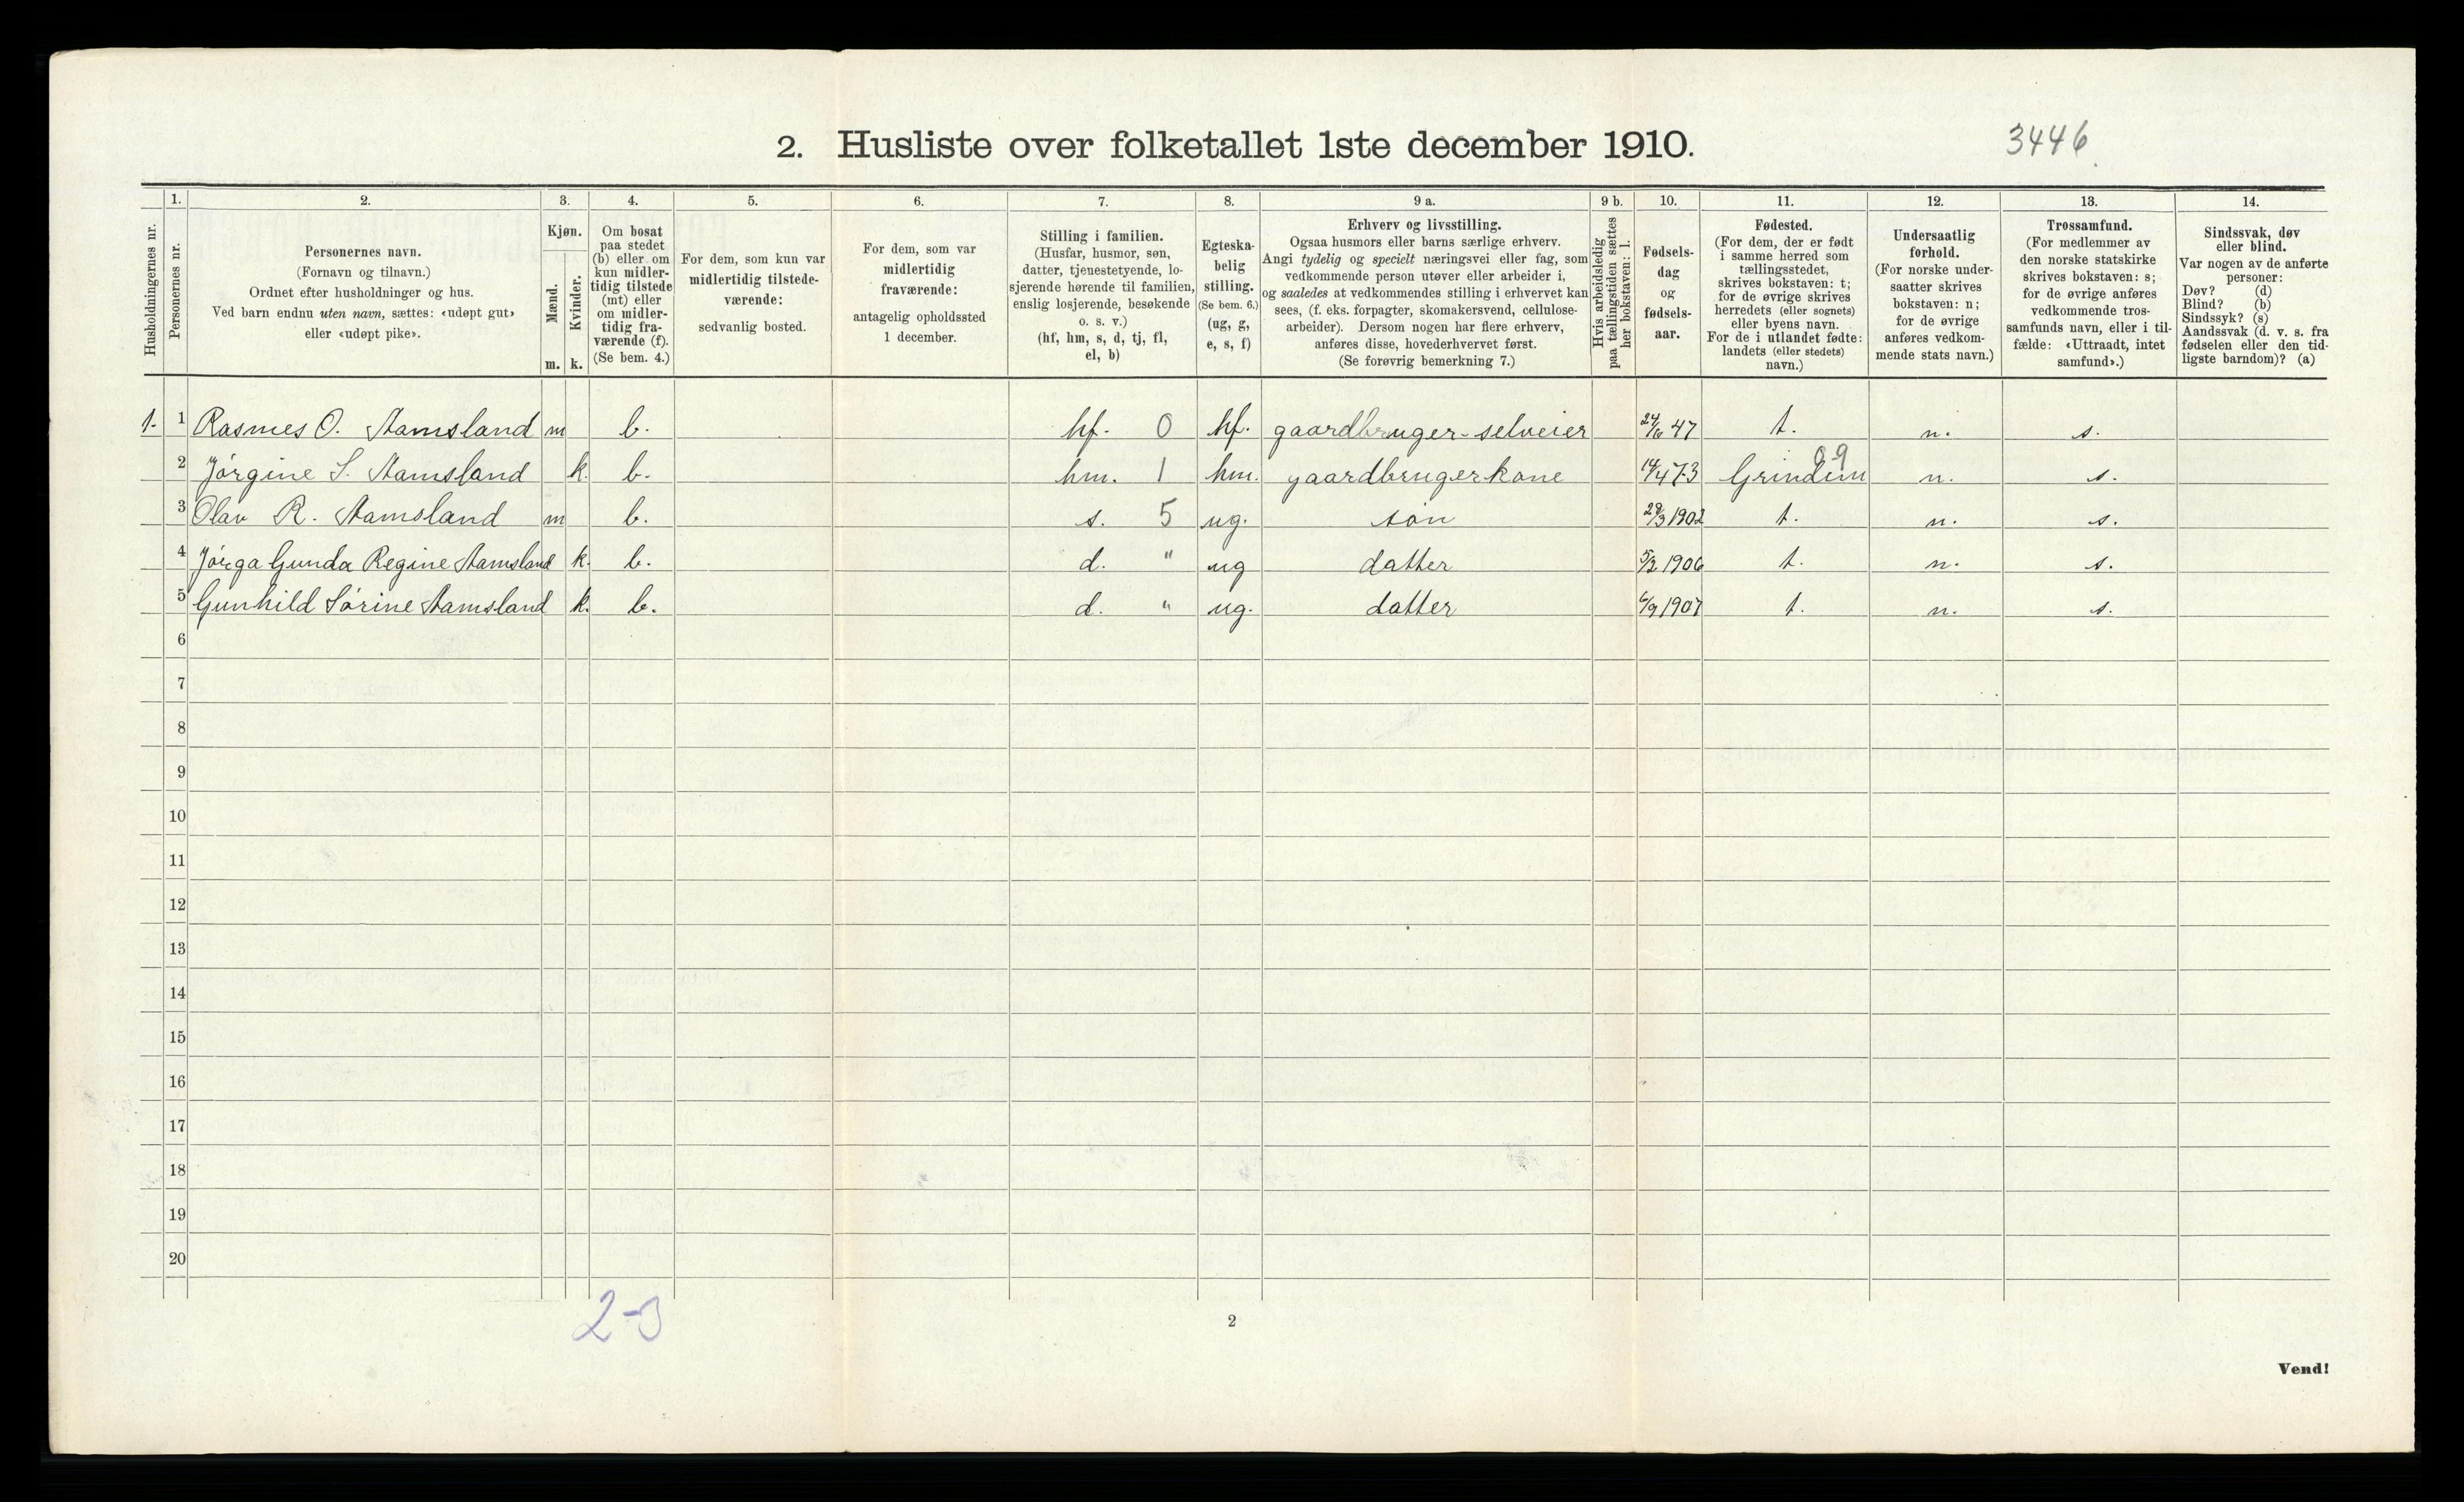 2. Husliste over folketallet 1ste december 1910.
3446
Husholdningernes nr.
1.
Personernes nr.
2.
Personernes navn.
(Fornavn og tilnavn.)
Ordnet efter husholdninger og hus.
Ved barn endnu uten navn, sættes: «udøpt gut»
eller «udøpt pike».
3.
Kjøn.
Mænd.
Kvinder.
m. k.
4.
Om bosat
paa stedet
(b) eller om
kun midler-
tidig tilstede
(mt) eller
om midler-
tidig fra-
værende (f).
(Se bem. 4.)
5.
For dem, som kun var
midlertidig tilstede-
værende:
sedvanlig bosted.
6.
For dem, som var
midlertidig
fraværende:
antagelig opholdssted
1 december.
7.
Stilling i familien.
(Husfar, husmor, søn,
datter, tjenestetyende, lo-
sjerende hørende til familien,
enslig losjerende, besøkende
o. s. v.)
(hf, hm, s, d, tj, fl,
el, b)
8.
Egteska-
belig
stilling.
(Se bem. 6.)
(ug, g,
e, s, f)
9 a.
Erhverv og livsstilling.
Ogsaa husmors eller barns særlige erhverv.
Angi tydelig og specielt næringsvei eller fag, som
vedkommende person utøver eller arbeider i,
og saaledes at vedkommendes stilling i erhvervet kan
sees, (f. eks. forpagter, skomakersvend, cellulose-
arbeider). Dersom nogen har flere erhverv,
anføres disse, hovederhvervet først.
(Se forøvrig bemerkning 7.)
9 b.
Hvis arbeidsledig
paa tællingstiden sættes
her bokstaven: l.
10.
Fødsels-
dag
og
fødsels-
aar.
11.
Fødested.
(For dem, der er født
i samme herred som
tællingsstedet,
skrives bokstaven: t;
for de øvrige skrives
herredets (eller sognets)
eller byens navn.
For de i utlandet fødte:
landets (eller stedets)
navn.)
12.
Undersaatlig
forhold.
(For norske under-
saatter skrives
bokstaven: n;
for de øvrige
anføres vedkom-
mende stats navn.)
13.
Trossamfund.
(For medlemmer av
den norske statskirke
skrives bokstaven: s;
for de øvrige anføres
vedkommende tros-
samfunds navn, eller i til-
fælde: «Uttraadt, intet
samfund».)
14.
Sindssvak, døv
eller blind.
Var nogen av de anførte
personer:
Døv? (d)
Blind? (b)
Sindssyk? (s)
Aandssvak (d. v. s. fra
fødselen eller den tid-
ligste barndom)? (a)
1. 1 Rasmes O. Stamsland m b. hf. 0 hf. gaardbruger-selveier 24/6 47 t. n. s.
09
2 Jørgine S. Stamsland k. b. hm. 1 hm. gaardbrugerkone 14/4 73 Grindem n. s.
3 Olav R. Stamsland m b. s. 5 ug. søn 29/3 1902 t. n. s.
4 Jørga Gunda Regine Stamsland k. b. d. " ug datter 5/3 1906 t. n. s.
5 Gunhild Sørine Stamsland k. b. d. " ug. datter 6/9 1907 t. n. s.
6
7
8
9
10
11
12
13
14
15
16
17
18
19
20
2-3
2
Vend!